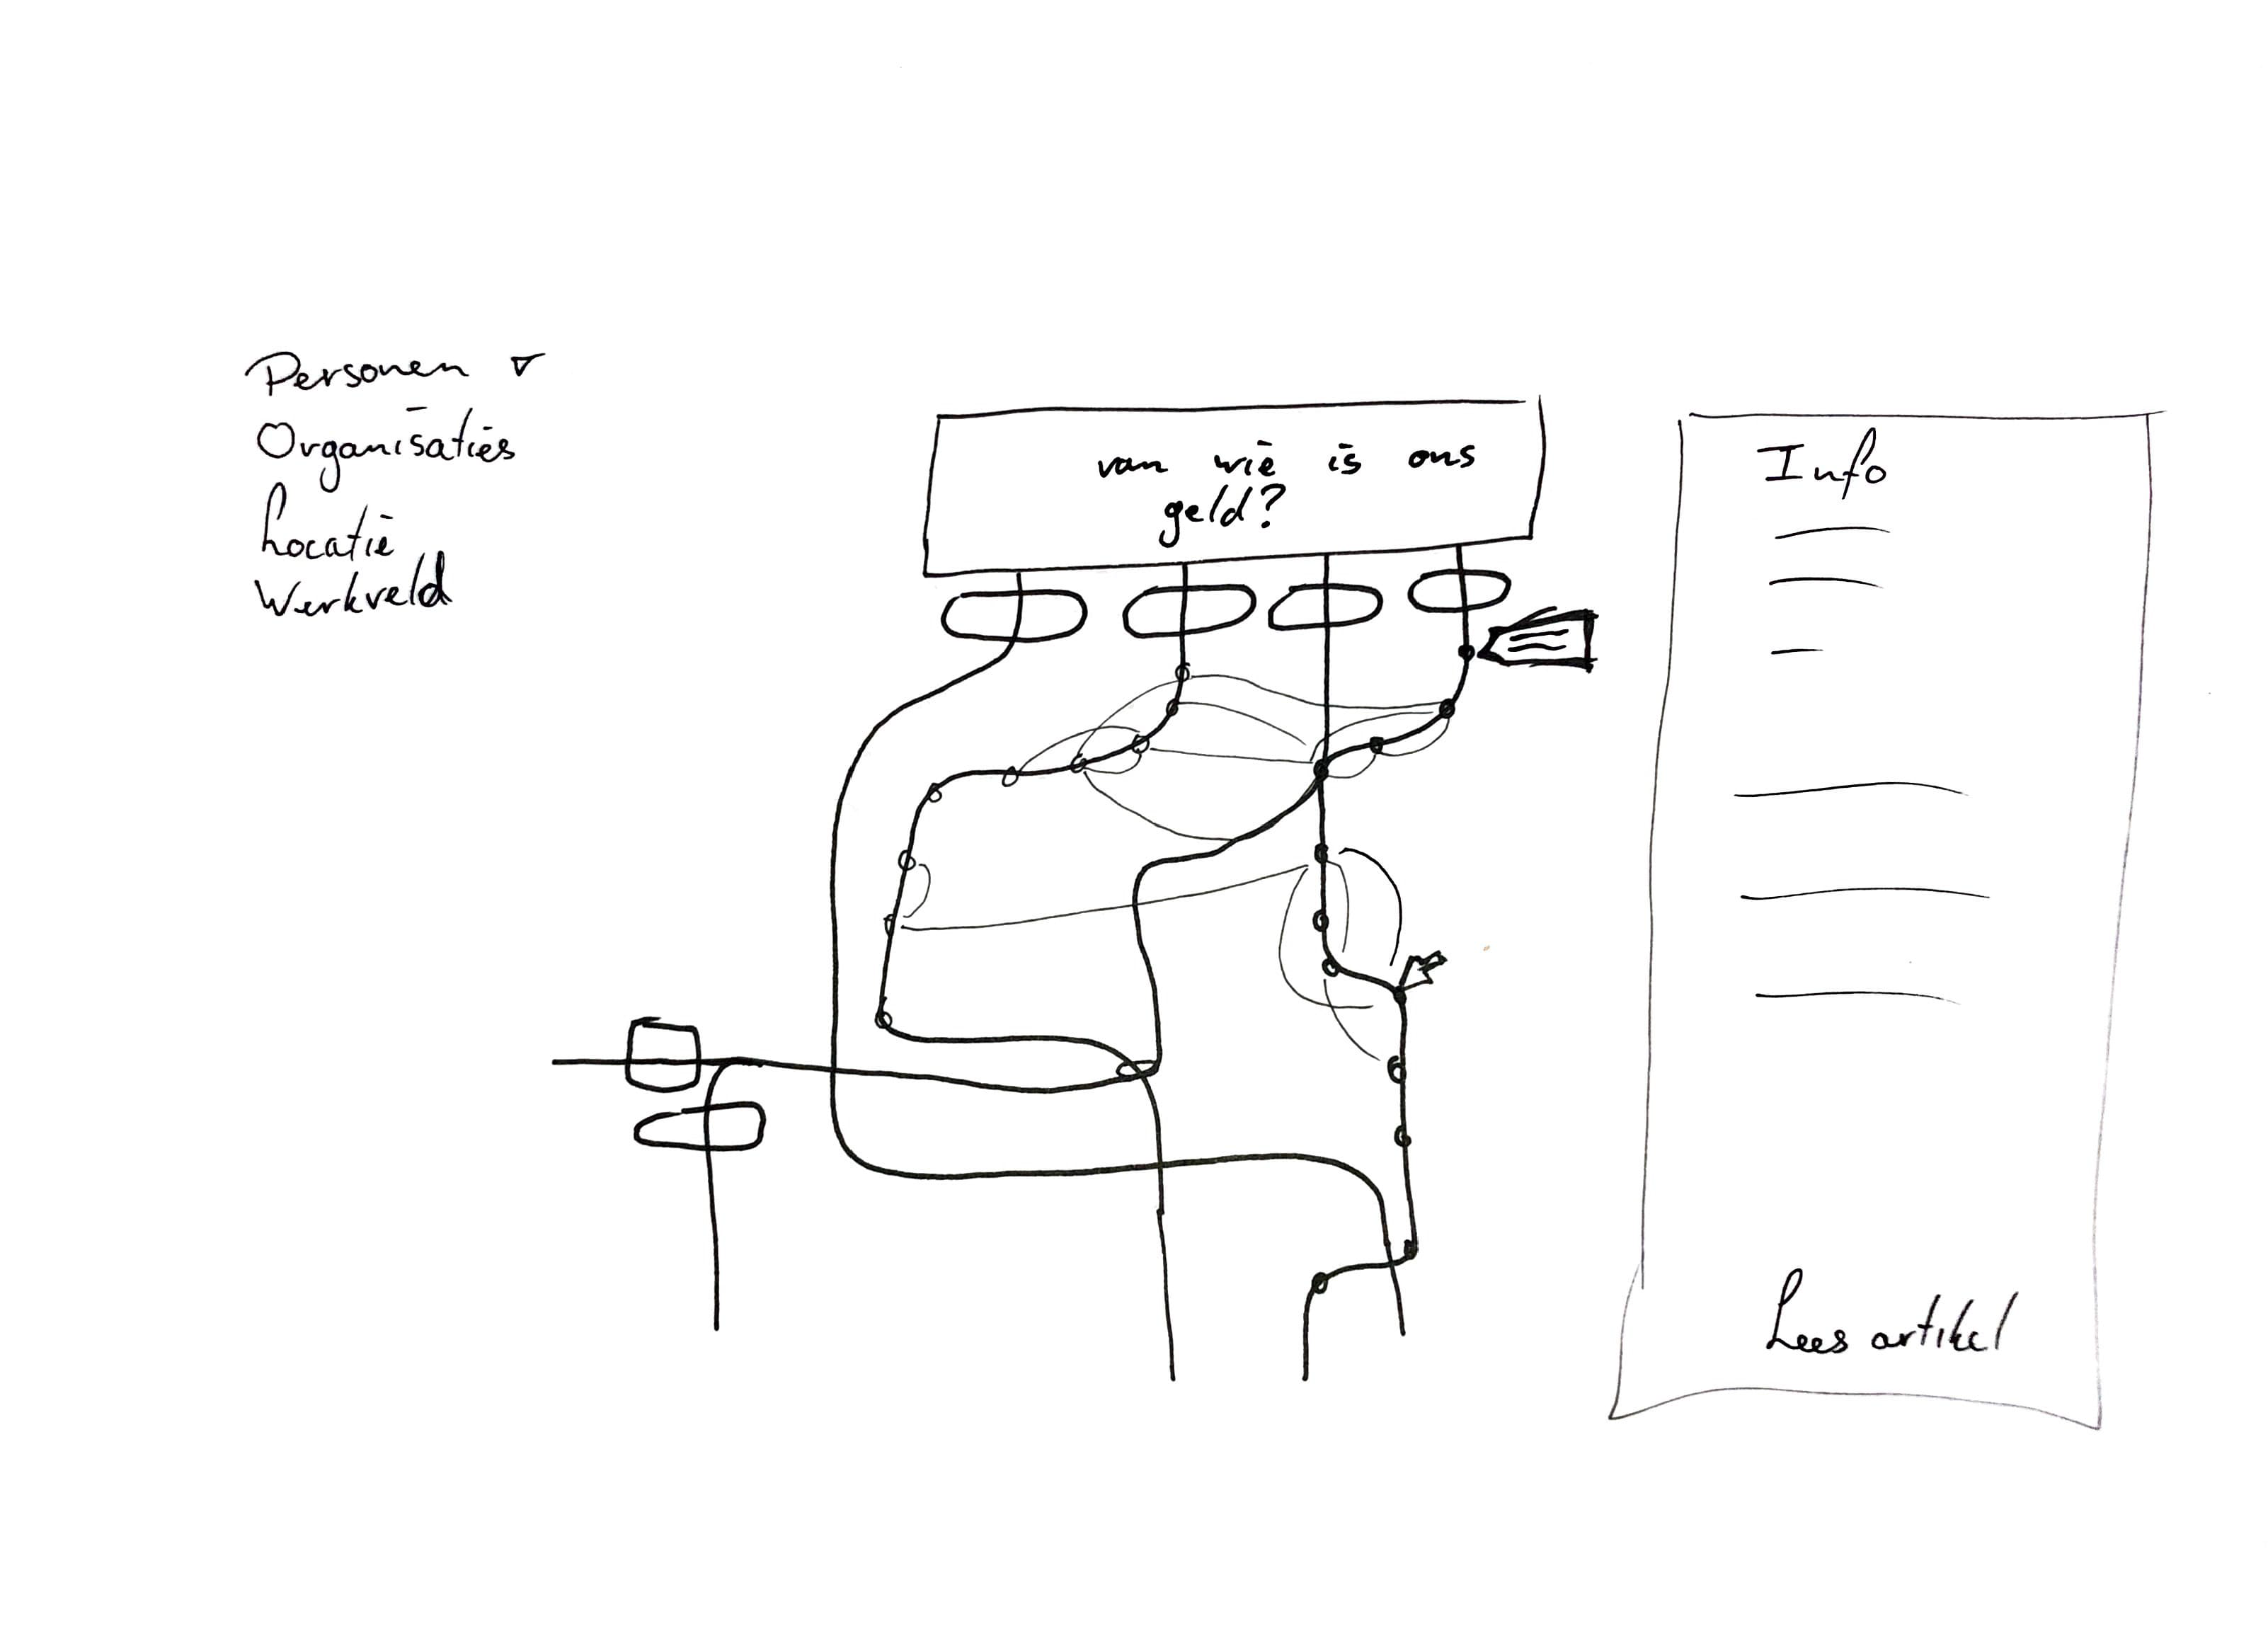 Personen
Organisaties
Locatie
Werkveld
van wie is ons
geld?
Info
Lees artikel